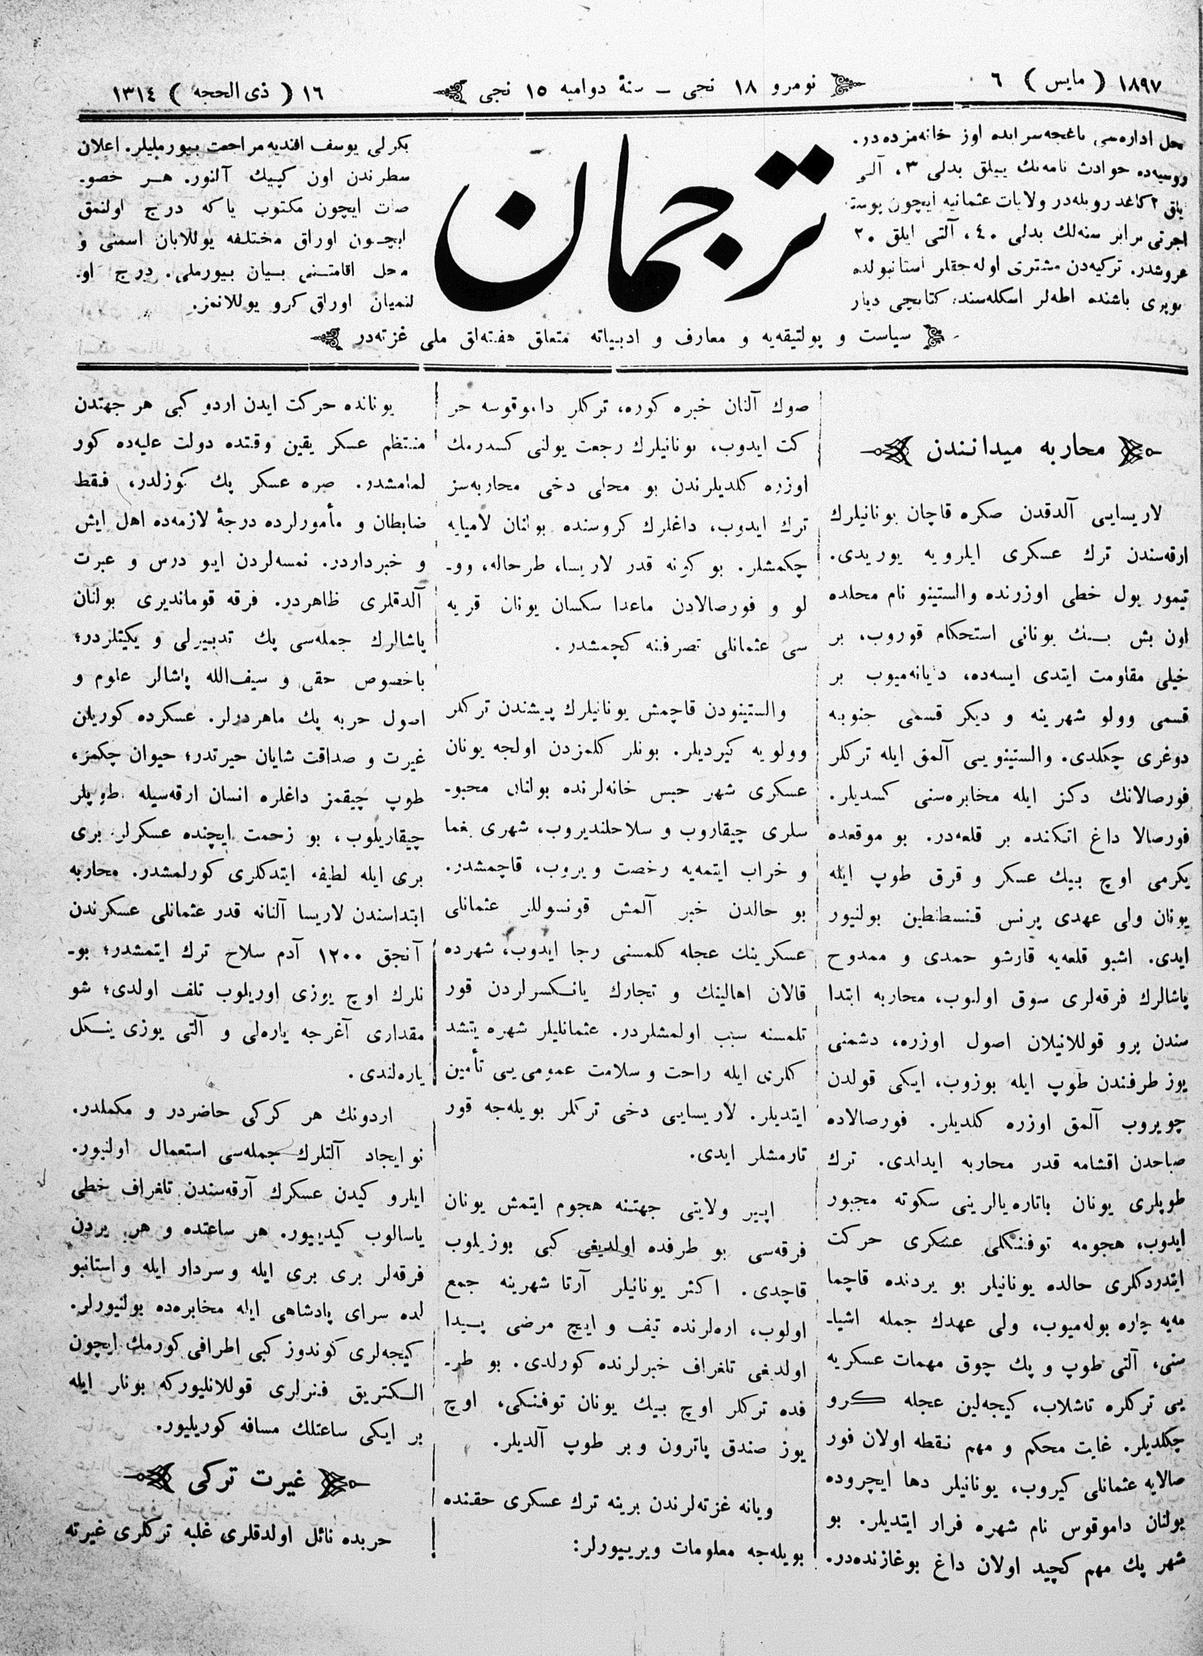 ١٨٩٧ ( مايس ) ٦
نومرو ١٨ نجى ــ سنهٔ دواميه ١٥ نجى
١٦ ( ذى الحجه ) ١٣١٤
محل اداره‌سى باغچه‌سرايده اوز خانه‌مزده‌در.
روسيه‌ده حوادث نامه‌نك ييللق بدلى ٣، آلتى
آيلق ٢ كاغد روبله‌در ولايات عثمانيه ايچون پوسته
اجرتى برابر سنه‌لك بدلى ٤٠، آلتى ايلق ٢٠
غروشدر. تركيه‌دن مشترى اوله‌جقلر استانبولده
كوپرى باشنده اطه‌لر اسكله‌سنده كتابچى ديار
ترجمان
بكرلى يوسف افنديه مراجعت بيورمليلر. اعلان
سطرندن اون كپيك آلنور. هر خصوـ
صات ايچون مكتوب ياكه درج اولنمق
ايچون اوراق مختلفه يوللايان اسمنى و
محل اقامتنى بيان بيورملى. درج اوـ
لنميان اوراق كرو يوللانمز.
سياست و پولتيقه‌يه و معارف و ادبياته متعلق هفته‌لق ملى غزته‌در
محاربه ميدانندن
لاريسايى آلدقدن صكره قاچان يونانيلرك
ارقه‌سندن ترك عسكرى ايلرويه يوريدى.
تيمور يول خطى اوزرنده والستينو نام محلده
اون بش بيك يونانى استحكام قوروب، بر
خيلى مقاومت ايتدى ايسه‌ده، دايانه‌ميوب بر
قسمى وولو شهرينه و ديكر قسمى جنوبه
دوغرى چكلدى. والستينويى آلمق ايله تركلر
فورصالانك دكز ايله مخابره‌سنى كسديلر.
فورصالا داغ اتكنده بر قلعه‌در. بو موقعده
يكرمى اوچ بيك عسكر و قرق طوپ ايله
يونان ولى عهدى پرنس قنسطنطين بولنيور
ايدى. اشبو قلعه‌يه قارشو حمدى و ممدوح
پاشالرك فرقه‌لرى سوق اولنوب، محاربه ابتدا
سندن برو قوللانيلان اصول اوزره، دشمنى
يوز طرفندن طوپ ايله بوزوب، ايكى قولدن
چويروب آلمق اوزره كلديلر. فورصالاده
صباحدن اقشامه قدر محاربه ايدلدى. ترك
طوپلرى يونان باتاره‌يالرينى سكوته مجبور
ايدوب، هجومه توفنكلى عسكرى حركت
ايتدردكلرى حالده يونانيلر بو يردنده قاچما
مه‌يه چاره بوله‌ميوب، ولى عهدك جمله اشياـ
سنى، آلتى طوپ و پك چوق مهمات عسكريه
يى تركلره تاشلاب، كيجه‌لين عجله كرو
چكلديلر. غايت محكم و مهم نقطه اولان فور
صالايه عثمانلى كيروب، يونانيلر دها ايچروده
بولنان داموقوس نام شهره فرار ايتديلر. بو
شهر پك مهم كچيد اولان داغ بوغازنده‌در.
صوك آلنان خبره كوره، تركلر داموقوسه حر
كت ايدوب، يونانيلرك رجعت يولنى كسدرمك
اوزره كلديلرندن بو محلى دخى محاربه‌سز
ترك ايدوب، داغلرك كروسنده بولنان لاميايه
چكمشلر. بو كونه قدر لاريسا، طرحاله، ووـ
لو و فورصالادن ماعدا سكسان يونان قريه
سى عثمانلى تصرفنه كچمشدر.
والستينودن قاچمش يونانيلرك پيشندن تركلر
وولويه كيرديلر. بونلر كلمزدن اولجه يونان
عسكرى شهر حبس خانه‌لرنده بولنان محبوـ
سلرى چيقاروب و سلاحلنديروب، شهرى يغما
و خراب ايتمه‌يه رخصت ويروب، قاچمشدر.
بو حالدن خبر آلمش قونسوللر عثمانلى
عسكرينك عجله كلمسنى رجا ايدوب، شهرده
قالان اهالينك و تجارك يانكسرلردن قور
تلمسنه سبب اولمشلردر. عثمانليلر شهره يتشد
كلرى ايله راحت و سلامت عموميى تأمين
ايتديلر. لاريسايى دخى تركلر بويله‌جه قور
تارمشلر ايدى.
اپير ولايتى جهتنه هجوم ايتمش يونان
فرقه‌سى بو طرفده اولديغى كبى بوزيلوب
قاچدى. اكثر يونانيلر آرتا شهرينه جمع
اولوب، اره‌لرنده تيف و ايچ مرضى پيدا
اولدغى تلغراف خبرلرنده كورلدى. بو طرـ
فده تركلر اوچ بيك يونان توفنكى، اوچ
يوز صندق پاترون و بر طوپ آلديلر.
ويانه غزته‌لرندن برينه ترك عسكرى حقنده
بويله‌جه معلومات ويرييورلر:
يونانده حركت ايدن اردو كبى هر جهتدن
منتظم عسكر يقين وقتده دولت عليه‌ده كور
لمامشدر. صره عسكر پك كوزلدر، فقط
ضابطان و مأمورلرده درجهٔ لازمه‌ده اهل ايش
و خبرداردر. نمسه‌لردن ايو درس و عبرت
آلدقلرى ظاهردر. فرقه قومانديرى بولنان
پاشالرك جمله‌سى پك تدبيرلى و يكيتلردر؛
باخصوص حقى و سيف‌الله پاشالر علوم و
اصول حربه پك ماهردرلر. عسكرده كوريلن
غيرت و صداقت شايان حيرتدر؛ حيوان چكمز،
طوپ چيقمز داغلره انسان ارقه‌سيله طوپلر
چيقاريلوب، بو زحمت ايچنده عسكرلر برى
برى ايله لطيفه ايتدكلرى كورلمشدر. محاربه
ابتداسندن لاريسا آلنانه قدر عثمانلى عسكرندن
آنجق ١٢٠٠ آدم سلاح ترك ايتمشدر؛ بوـ
نلرك اوچ يوزى اوريلوب تلف اولدى؛ شو
مقدارى آغرجه ياره‌لى و آلتى يوزى ينكل
ياره‌لندى.
اردونك هر كركى حاضردر و مكملدر.
نو ايجاد آلتلرك جمله‌سى استعمال اولنيور.
ايلرو كيدن عسكرك آرقه‌سندن تلغراف خطى
ياسالوب كيدييور. هر ساعتده و هر يردن
فرقه‌لر برى برى ايله و سردار ايله و استانبو
لده سراى پادشاهى ايله مخابره‌ده بولنيورلر.
كيجه‌لرى كوندوز كبى اطرافى كورمك ايچون
الكتريق فنرلرى قوللانليوركه بونلر ايله
بر ايكى ساعتلك مسافه كوريليور.
غيرت تركى
حربده نائل اولدقلرى غلبه تركلرى غيرته